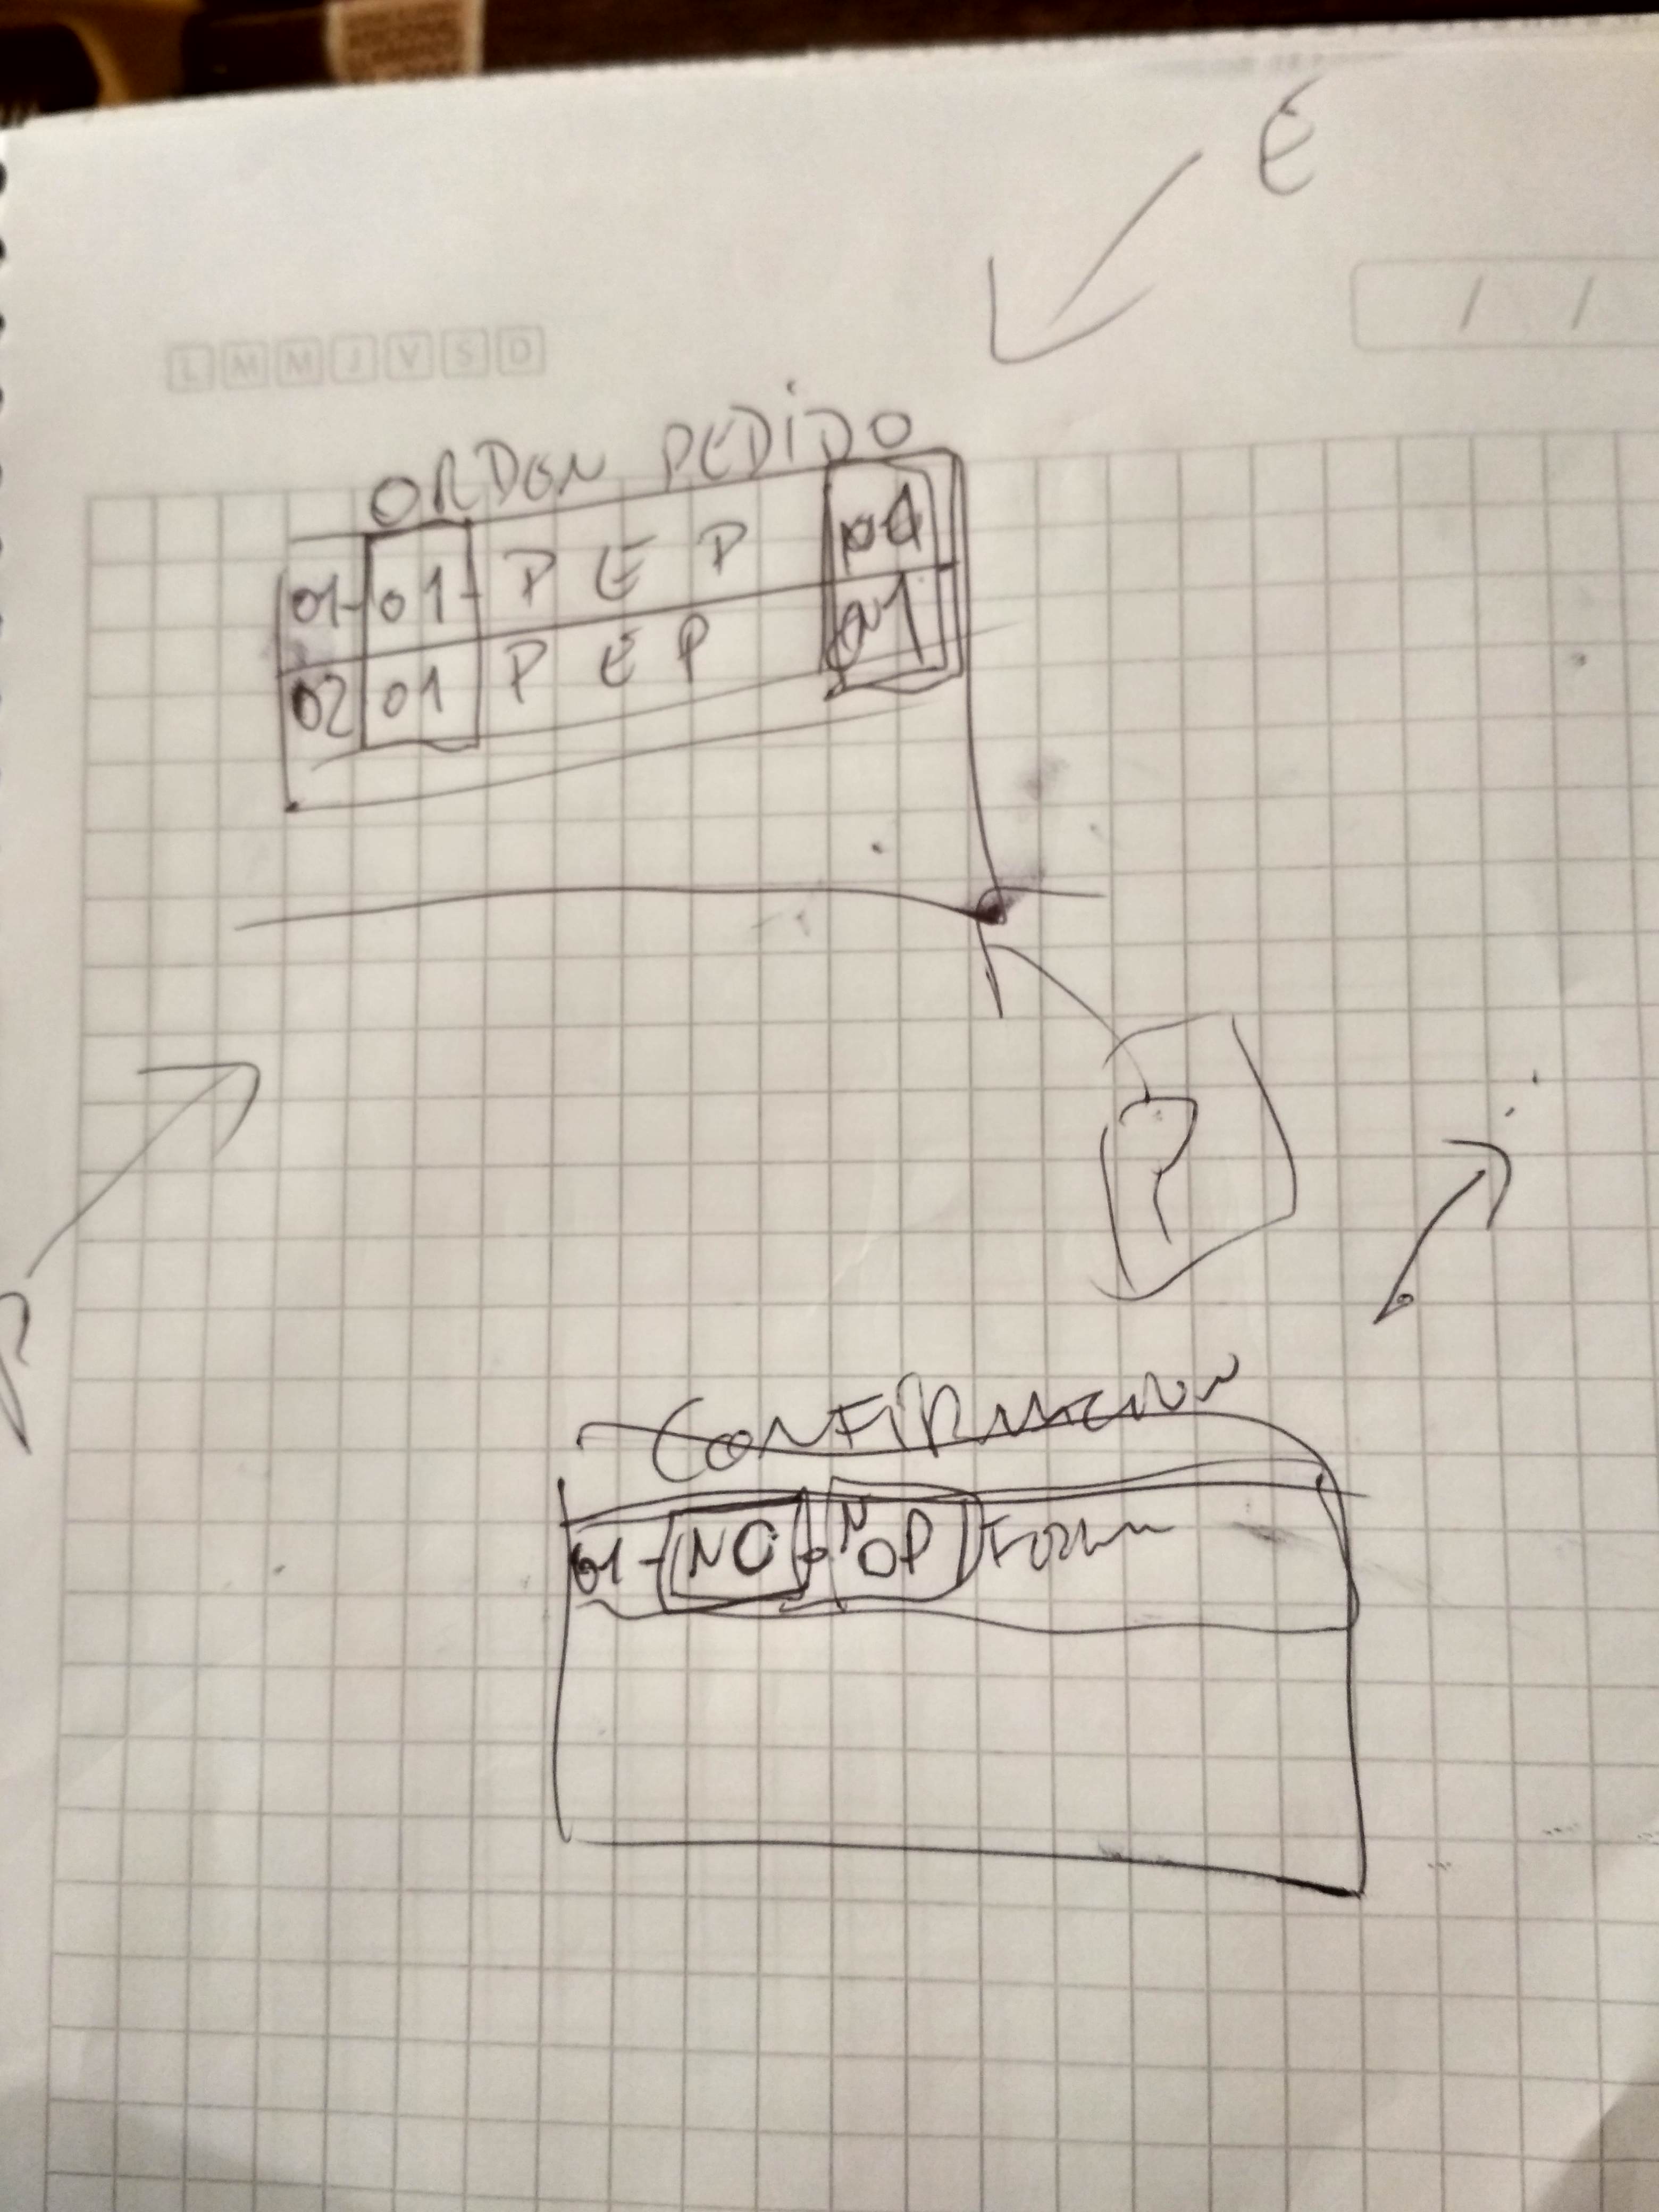 E
L M M J V S D / /
ORDEN PEDIDO
01-01- P E P
02 01 P E P 01
?
CONFIRMACION
01-NO-N OP